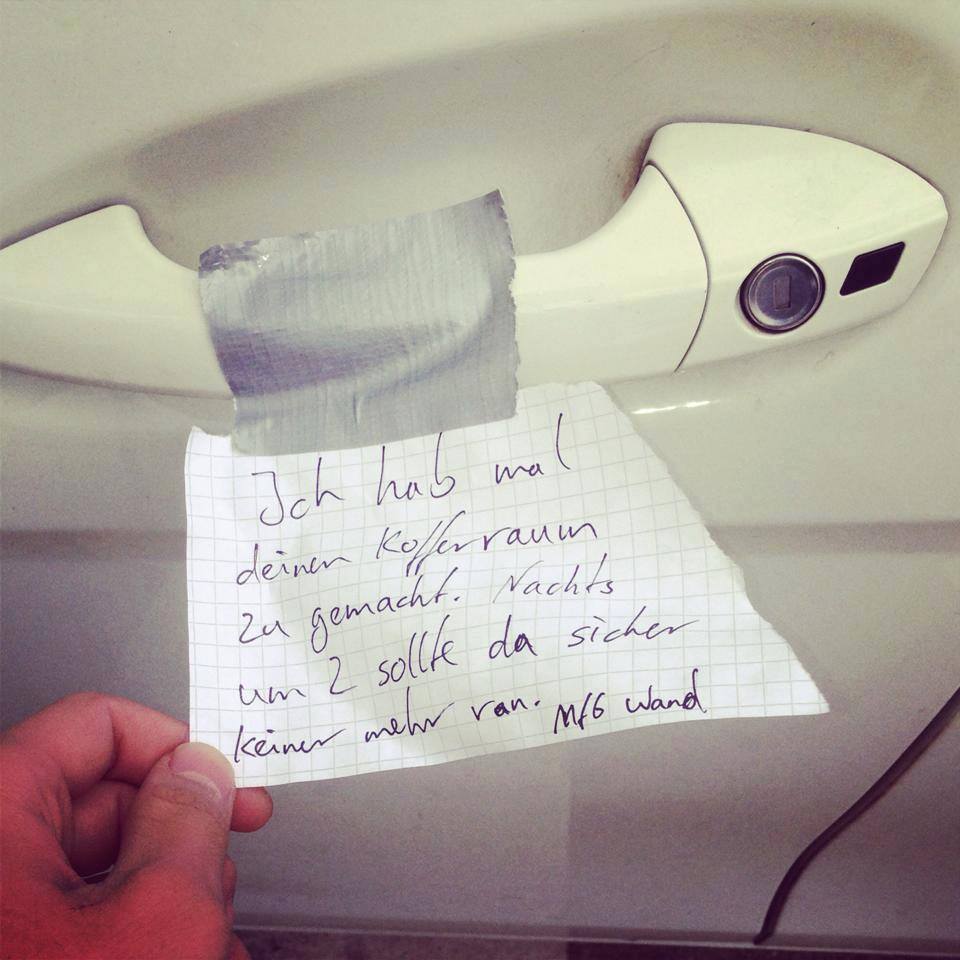 Ich hab mal
deinen Kofferraum
zu gemacht. Nachts
um 2 sollte da sicher
keiner mehr ran. MfG Wand